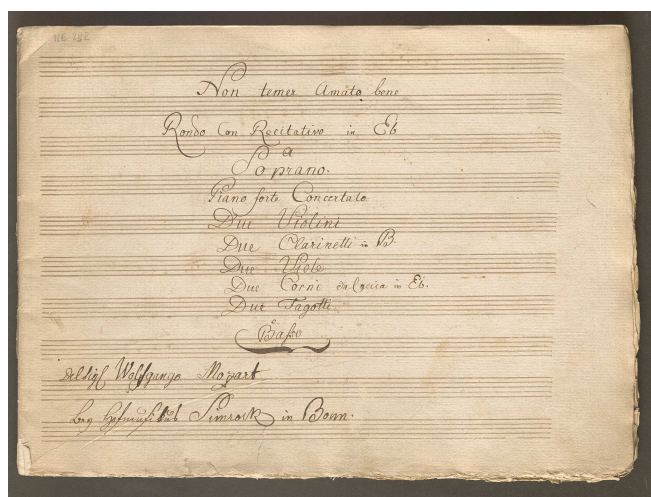 Non temer Amato bene
Rondo Con Recitativo in Eb
a
Soprano.
Piano forte Concertato
Due Violini
Due Clarinetti in B.
Due Viole
Due Corni da Caccia in Eb.
Due Fagotti
e
Basso
del Sigl Wolfgango Mozart
bey Hofmusikus Simrock in Bonn.